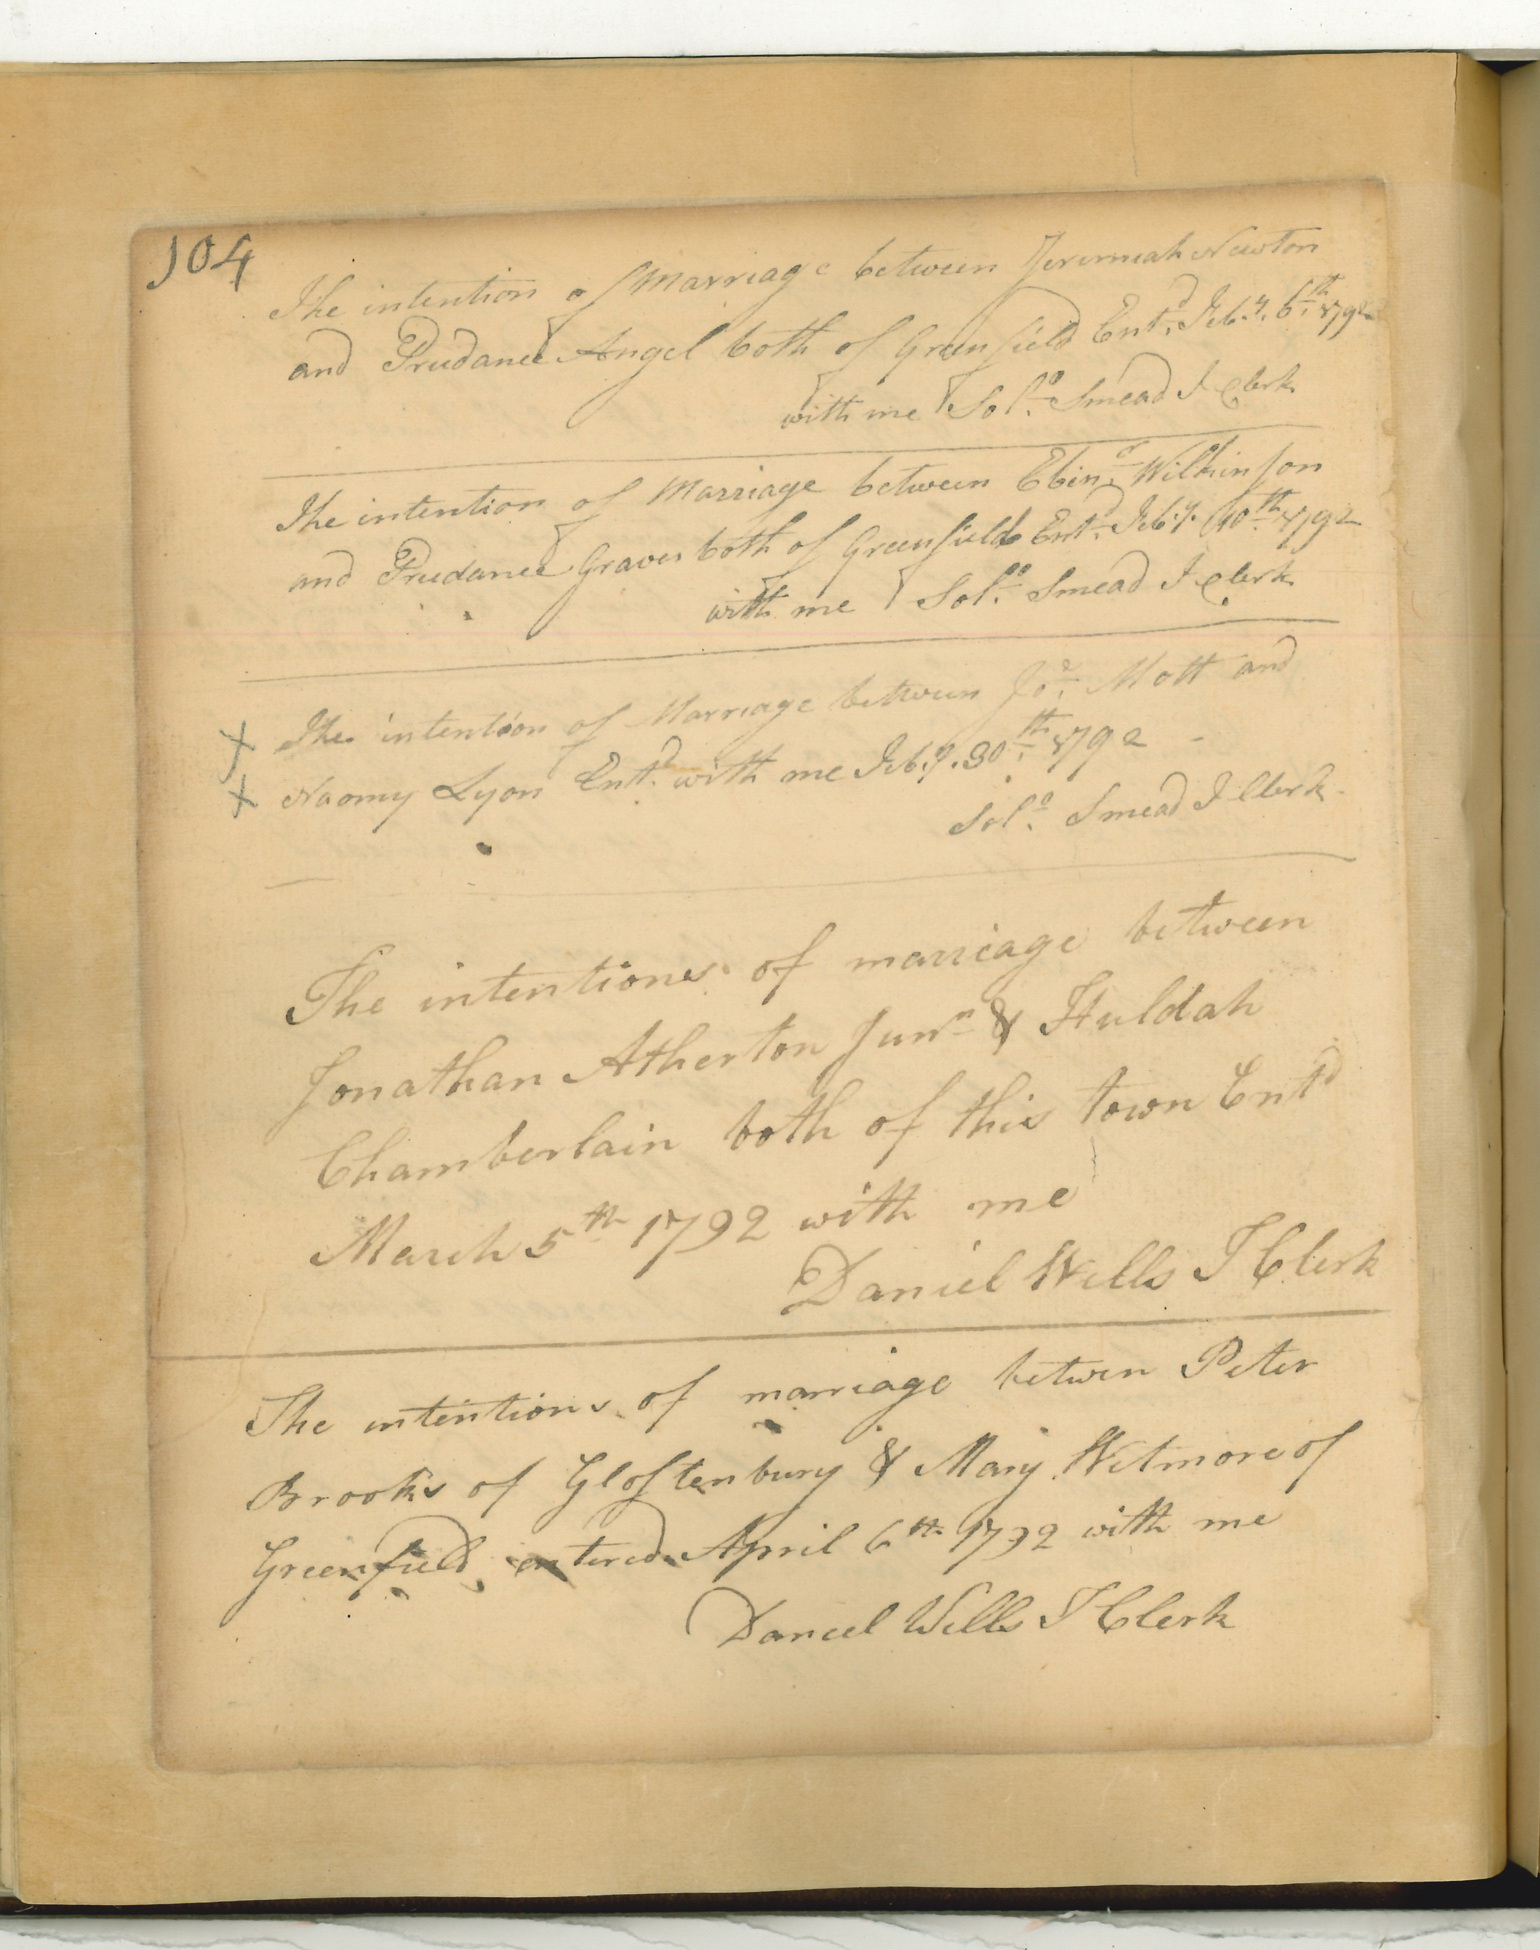 104
The intention of Marriage between Jeremiah Newton
and Prudance Angel both of Greenfield Entd. Feby. 6th 1792
with me Solo. Smead T Clerk
The intention of Marriage between Ebinr. Wilkinson
and Prudance Graves both of Greenfield Entd. Feby. 10th 1792
with me Solo. Smead T Clerk
x The intention of Marriage between Mott and
x Naomy Lyon Entd. with me Feby. 30th 1792
Solo. Smead T Clerk
The intentions of marriage between
Jonathan Atherton Junr & Huldah
Chamberlain both of this town Entd
March 5th 1792 with me
Daniel Wells T Clerk
The intentions of marriage betwen Peter
Brooks of Glostenbury & Mary Wetmore of
Greenfield entered April 6th 1792 with me
Daniel Wells T Clerk